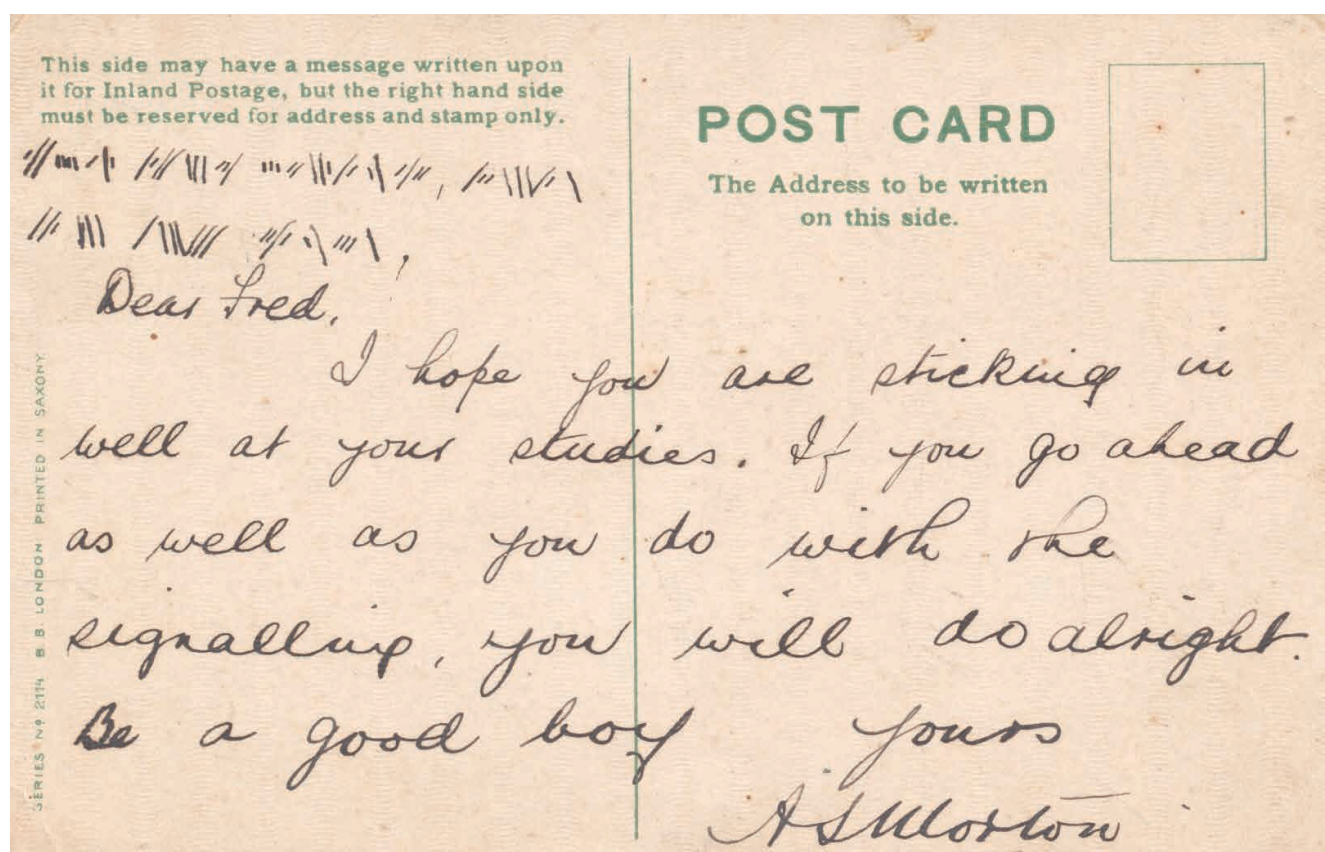 This side may have a message written upon
it for Inland Postage, but the right hand side
must be reserved for address and stamp only.
POST CARD
The Address to be written
on this side.
Dear Fred.
I hope you are sticking in
well at your studies. If you go ahead
as well as you do with the
signalling, you will do alright.
Be a good boy yours
A S Morton
SERIES Nº 2114 B.B. LONDON PRINTED IN SAXONY.